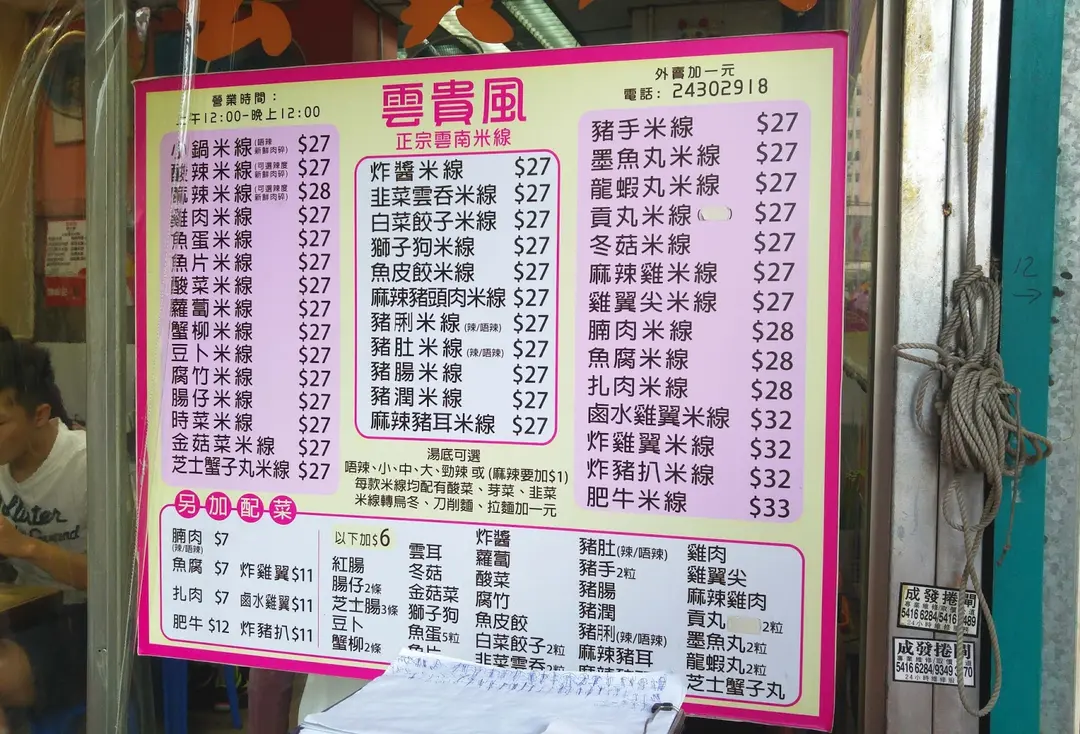 營業時間：
上午12:00-晚上12:00
雲貴風
正宗雲南米線
外賣加一元
電話：24302918
小鍋米線(唔辣 新鮮肉碎) $27
酸辣米線(可選辣度 新鮮肉碎) $27
麻辣米線(可選辣度 新鮮肉碎) $28
雞肉米線 $27
魚蛋米線 $27
魚片米線 $27
酸菜米線 $27
蘿蔔米線 $27
蟹柳米線 $27
豆卜米線 $27
腐竹米線 $27
腸仔米線 $27
時菜米線 $27
金菇菜米線 $27
芝士蟹子丸米線 $27
炸醬米線 $27
韭菜雲吞米線 $27
白菜餃子米線 $27
獅子狗米線 $27
魚皮餃米線 $27
麻辣豬頭肉米線 $27
豬脷米線(辣/唔辣) $27
豬肚米線(辣/唔辣) $27
豬腸米線 $27
豬潤米線 $27
麻辣豬耳米線 $27
湯底可選
唔辣、小、中、大、勁辣 或 (麻辣要加$1)
每款米線均配有酸菜、芽菜、韭菜
米線轉烏冬、刀削麵、拉麵加一元
豬手米線 $27
墨魚丸米線 $27
龍蝦丸米線 $27
貢丸米線 $27
冬菇米線 $27
麻辣雞米線 $27
雞翼尖米線 $27
腩肉米線 $28
魚腐米線 $28
扎肉米線 $28
鹵水雞翼米線 $32
炸雞翼米線 $32
炸豬扒米線 $32
肥牛米線 $33
另加配菜
腩肉 $7
(辣/唔辣)
魚腐 $7 炸雞翼$11
扎肉 $7 鹵水雞翼$11
肥牛 $12 炸豬扒$11
以下加$6
紅腸
腸仔2條
芝士腸3條
豆卜
蟹柳2條
雲耳
冬菇
金菇菜
獅子狗
魚蛋5粒
魚片
炸醬
蘿蔔
酸菜
腐竹
魚皮餃
白菜餃子2粒
韭菜雲吞2粒
豬肚(辣/唔辣)
豬手2粒
豬腸
豬潤
豬脷(辣/唔辣)
麻辣豬耳
雞肉
雞翼尖
麻辣雞肉
貢丸 2粒
墨魚丸2粒
龍蝦丸2粒
芝士蟹子丸
12
成發捲閘
24小時維修
成發捲閘
5416 6284
24小時維修